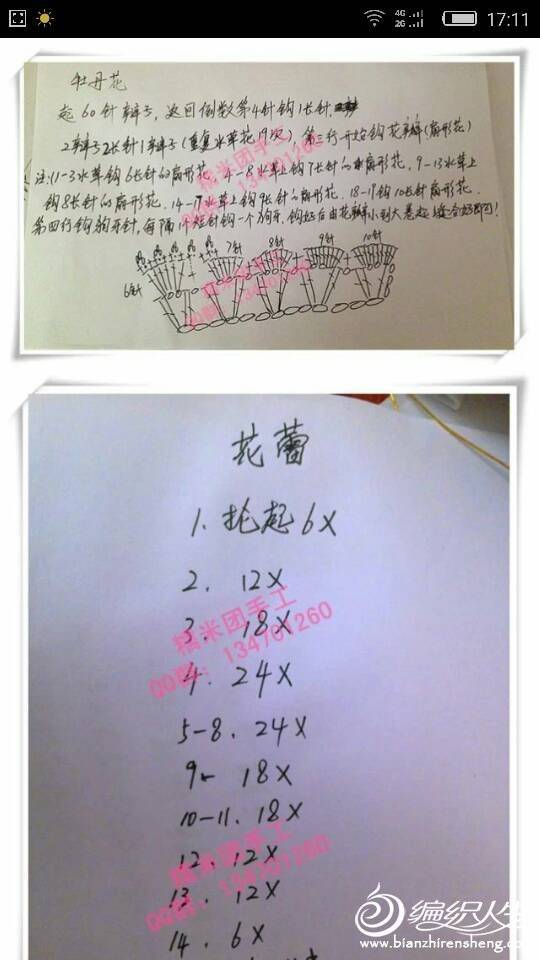 4G
2G
17:11
牡丹花
起60针辫子，返回倒数第4针钩1长针，
2辫子2长针1辫子(重复水草花19次) 第三行开始钩花瓣(扇形花)
注:(1-3水草钩6长针的扇形花，4-8水草上钩7长针的扇形花，9-13水草上
钩8长针的扇形花，14-17水草上钩9长针的扇形花，18-19钩10长针扇形花.
第四行钩狗牙针,每隔1个短针钩一个狗牙.钩好后由花瓣小到大卷起缝合好即可!
6针 7针 8针 9针 10针
糯米团手工
花蕾
1、轮起6X
2. 12X
3. 18X
糯米团手工
QQ群：134701260
4. 24X
5-8. 24X
9 18X
10-11. 18X
12. 12X
13. 12X
14. 6X
糯米团手工
编织人生
www.bianzhirensheng.com